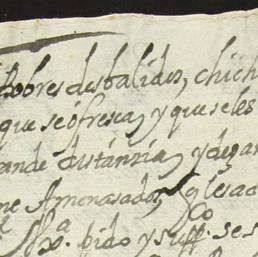 Pobres desbalidos, chich
que se ofresca, y que se les
rande distánzia, y deçan
ne Amenasados, Yglesiac
pido y supp.co se s